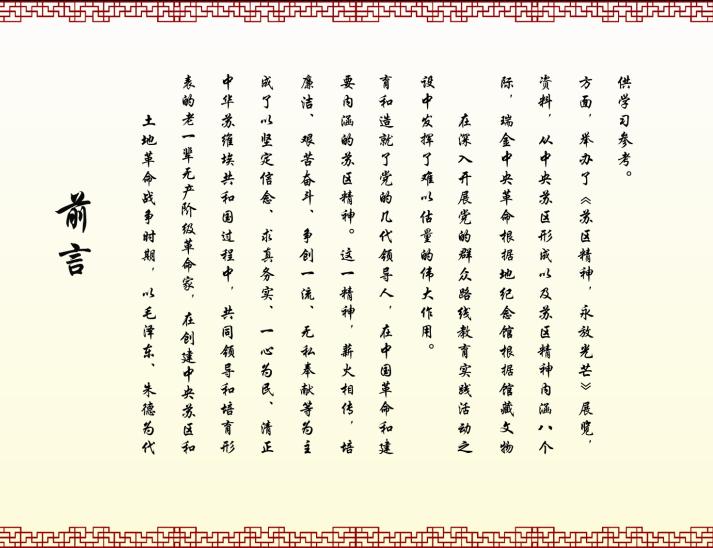 前言
土地革命战争时期，以毛泽东、朱德为代
表的老一辈无产阶级革命家，在创建中央苏区和
中华苏维埃共和国过程中，共同领导和培育形
成了以坚定信念、求真务实、一心为民、清正
廉洁、艰苦奋斗、争创一流、无私奉献等为主
要内涵的苏区精神。这一精神，薪火相传，培
育和造就了党的几代领导人，在中国革命和建
设中发挥了难以估量的伟大作用。
在深入开展党的群众路线教育实践活动之
际，瑞金中央革命根据地纪念馆根据馆藏文物
资料，从中央苏区形成以及苏区精神内涵八个
方面，举办了《苏区精神，永放光芒》展览，
供学习参考。